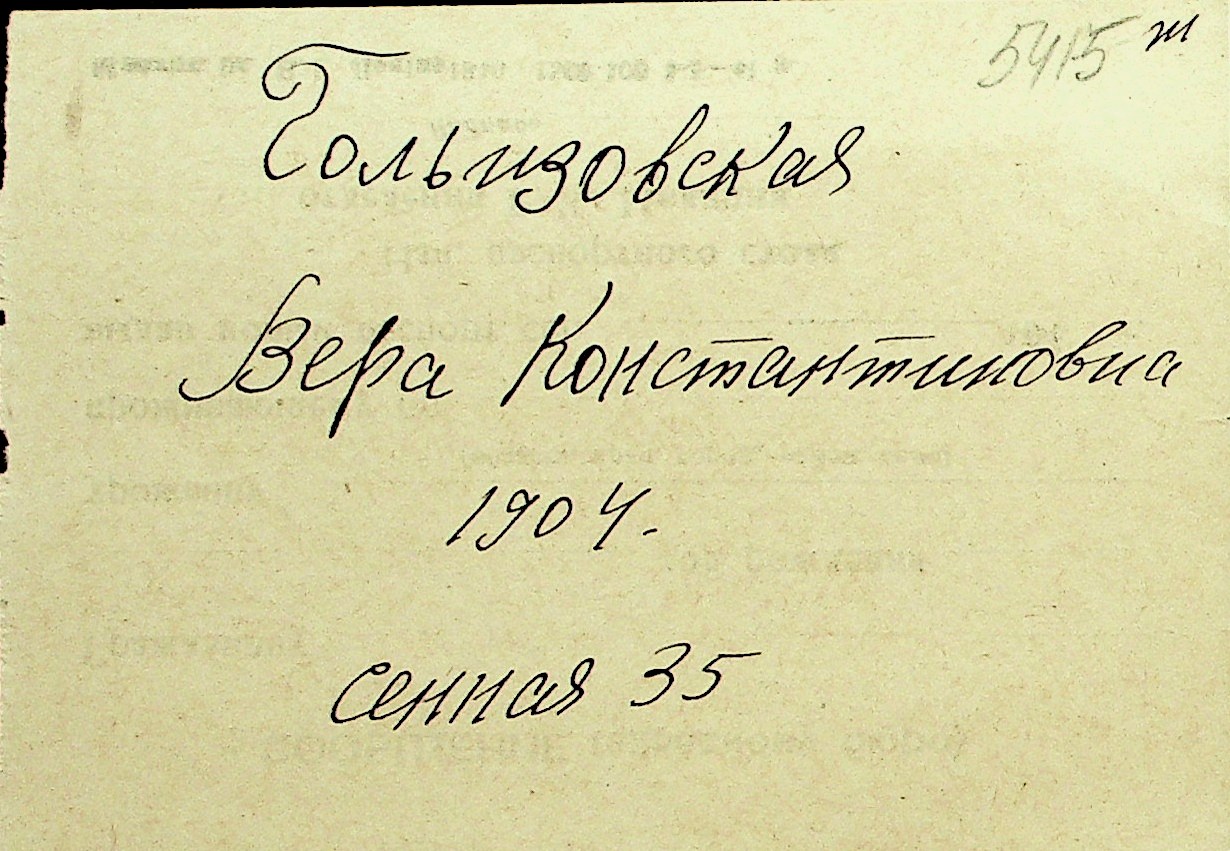 5415 ж
Гользовская
Вера Константиновна
1904.
сенная 35